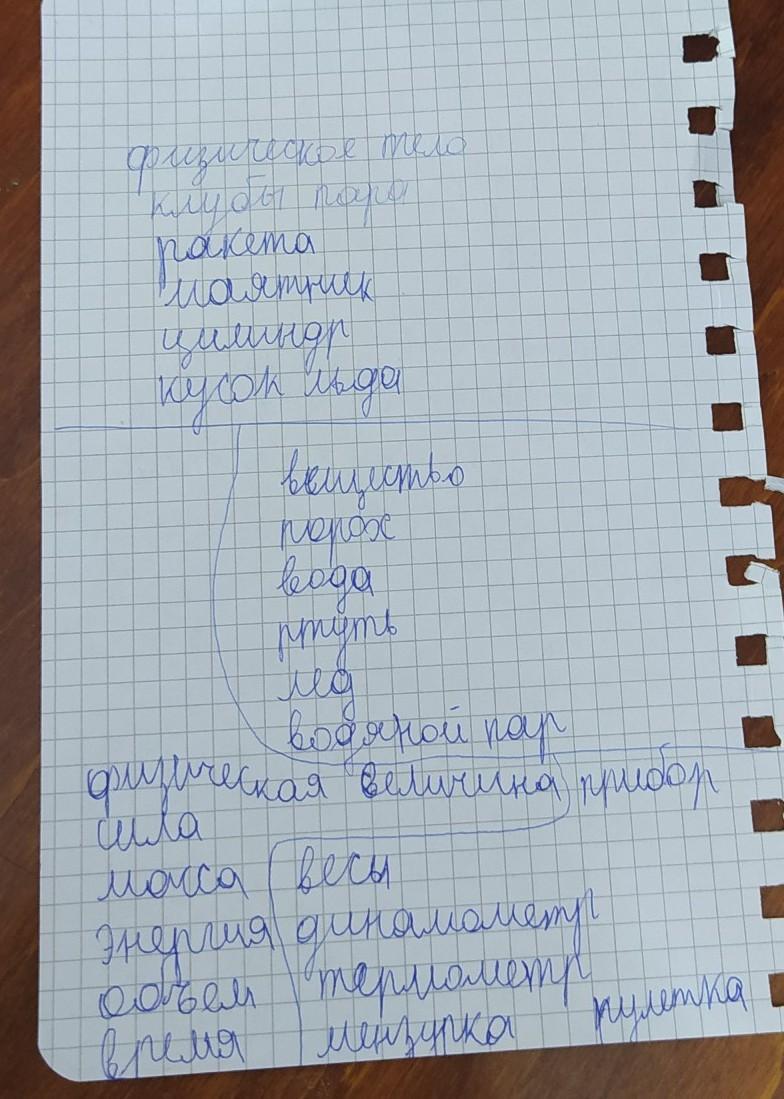 физическое тело
клубы пара
ракета
маятник
цилиндр
кусок льда
вещество
порох
вода
ртуть
лед
водяной пар
физическая величина прибор
сила
масса весы
энергия динамометр
объем термометр
время мензурка рулетка